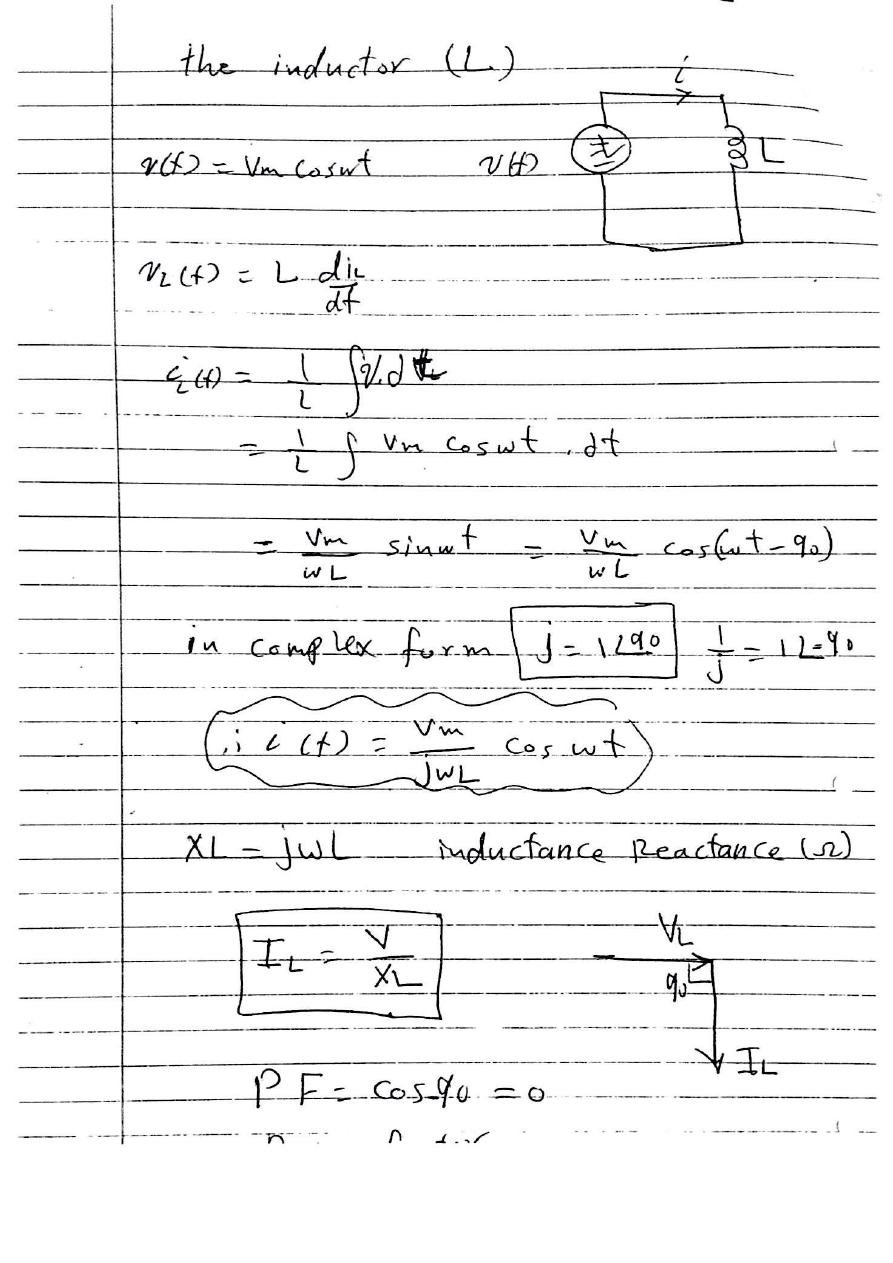 the inductor (L)
i
v(t) = Vm cosωt v(t) L
vL(t) = L diL/dt
iL(t) = 1/L ∫v.dt
= 1/L ∫ Vm cosωt . dt
= Vm/ωL sinωt = Vm/ωL cos(ωt-90)
in complex form j = 1∠90 1/j = 1∠-90
i(t) = Vm/jωL cos ωt
XL = jωL inductance Reactance (Ω)
IL = V/XL VL
90
IL
PF = cos 90 = 0